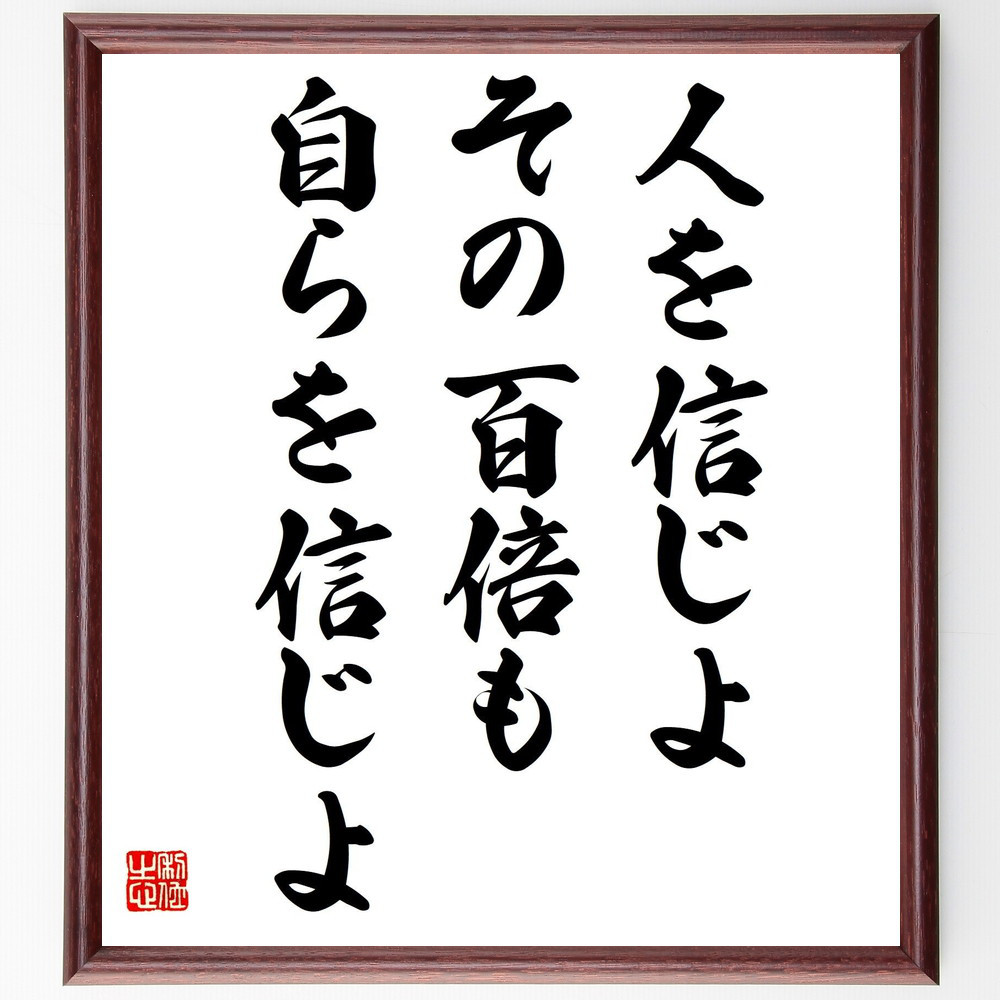 人を信じよ
その百倍も
自らを信じよ